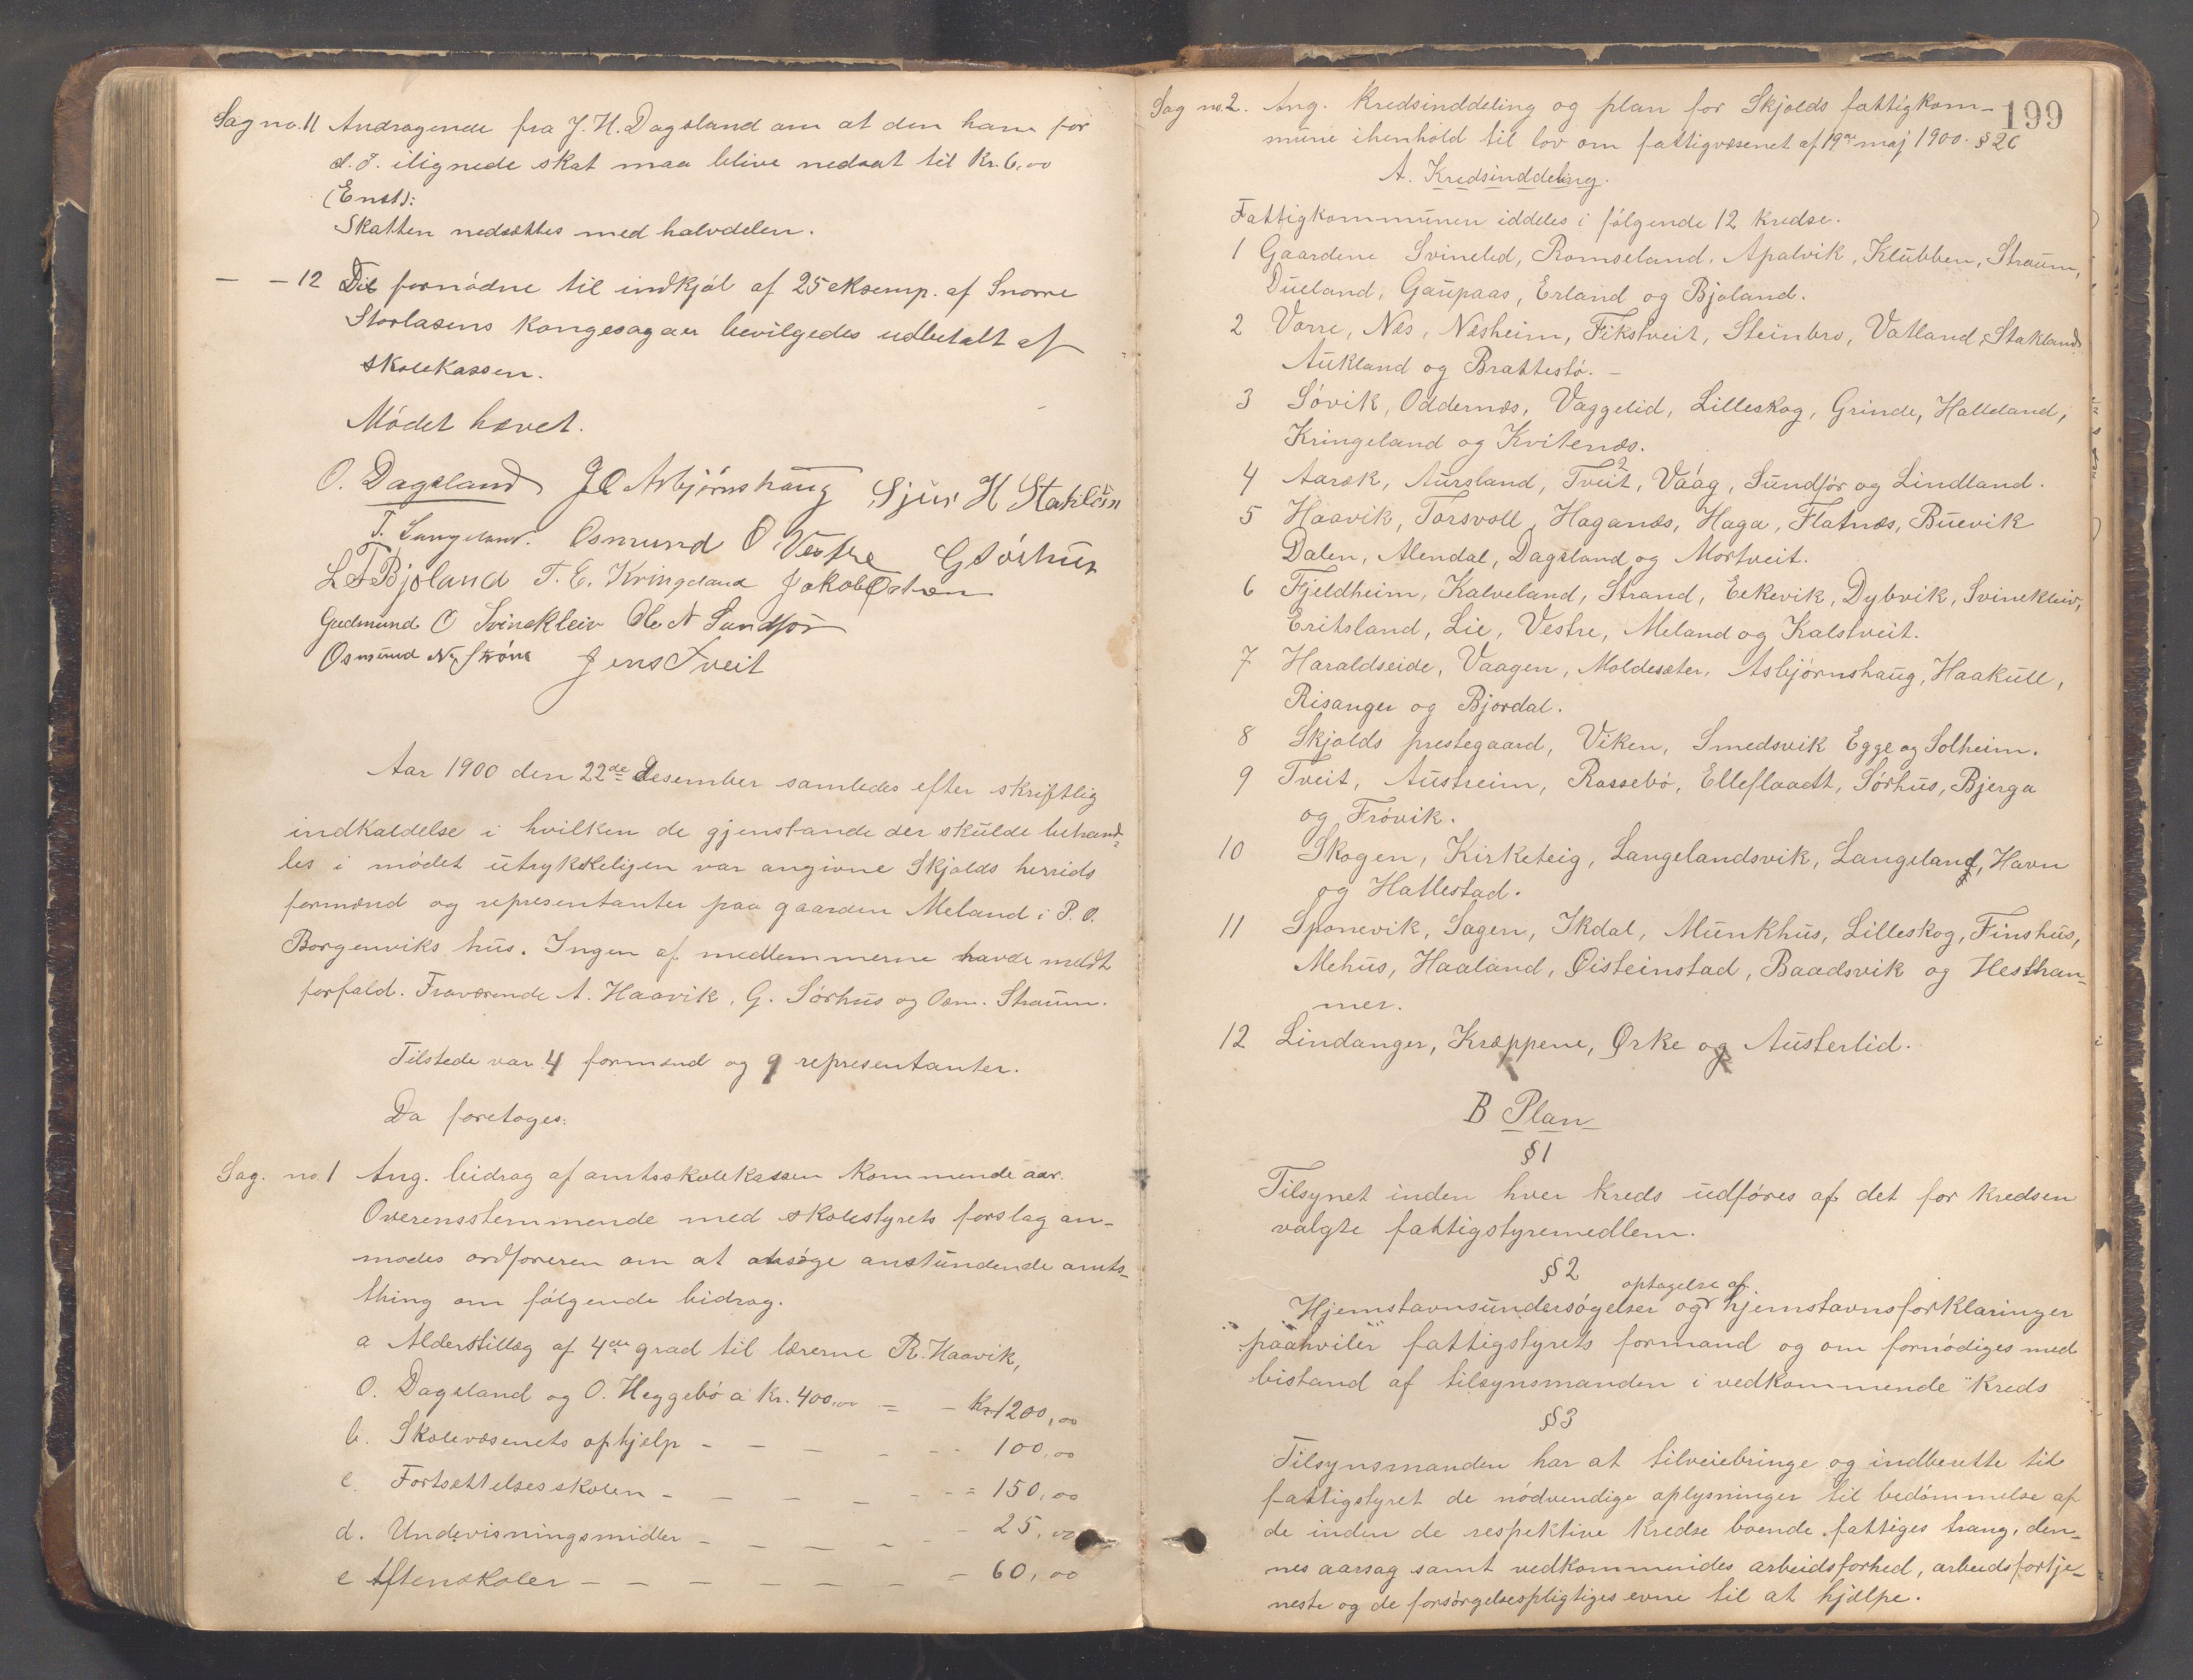 Sag no. 11 Andragende fra J. H. Dagsland om at den ham for
d. J. ilignede skat maa blive nedsat til Kr. 6,00
(Enst):
Skatten nedsættes med halvdelen.
— - 12 Det fornødne til indkjøb af 25 eksemp. af Snorre
Storlasens Kongesagaer bevilgedes udbetalt af
skolekassen.
Mødet hævet.
O. Dagsland J O Asbjørnshaug Sjur H
T. Langeland. Osmund O Vestre G Sørhus
L T Bjoland T. E. Kringeland Jakob
Gudmund O Svinekleiv Ole N Sundfør
Osmund N. Jens Tveit
Aar 1900 den 22de desember samledes efter skriftlig
indkaldelse i hvilken de gjenstande der skulde behand-
les i mødet utrykkeligen var angivne Skjolds herrids
formænd og representanter paa gaarden Meland i P. O.
Borgenviks hus. Ingen af medlemmerne havde meldt
forfald. Fraværende A. Haavik, G. Sørhus og Osm. Straum.
Tilstede var 4 formænd og 9 representanter.
Da foretoges:
Sag. no. 1 Ang. bidrag af amtsskolekassen kommende aar.
Overensstemmende med skolestyrets forslag an-
modes ordføreren om at ansøge anstundende amts-
thing om følgende bidrag.
a Alderstillæg af 4de grad til lærerne R. Haavik,
O. Dagsland og O. Heggebø a Kr. 400,00 = - Kr 1200,00
b. Skolevæsenets ophjælp - - - - - - 100,00
c. Fortsættelsesskolen - - - - - - = 150,00
d. Undevisningsmidler - - - - - - 25,00
e Aftenskoler - - - - - - - 60,00
199
Sag no. 2. Ang. Kredsinddeling og plan for Skjolds fattigkom-
mune ihenhold til lov om fattigvæsenet af 19de maj 1900. § 26
A. Kredsinddeling.
Fattigkommunen iddeles i følgende 12 kredse.
1 Gaardene Svinelid, Romseland, Apalvik, Klubben, Straum,
Dueland, Gaupaas, Erland og Bjoland.
2 Vorre, Næs, Næsheim, Fikstveit, Steinbro, Vatland, Stakland
Aukland og Brattestø. -
3 Søvik, Oddernæs, Vaggelid, Lilleskog, Grinde, Halleland,
Kringeland og Kvitenæs.
4 Aaræk, Aursland, Tveit, Vaag, Sundfør og Lindland.
5 Haavik, Torsvoll, Haganæs, Haga, Flatnæs, Buevik
Dalen, Alendal, Dagsland og Mortveit.
6 Fjeldheim, Kalveland, Strand, Eekevik, Dybvik, Svinekleiv,
Eritsland, Lie, Vestre, Meland og Kalstveit.
7 Haraldseide, Vaagen, Moldesæter, Asbjørnshaug, Haakull,
Risanger og Bjordal.
8 Skjolds prestegaard, Viken, Smedsvik Egge og Solheim.
9 Tveit, Austreim, Rossebø, Elleflaadt, Sørhus, Bjerga
og Frøvik.
10 Skogen, Kirketeig, Langelandsvik, Langeland, Havn
og Hatlestad.
11 Sponevik, Sagen, Ikdal, Munkhus, Lilleskog, Finshus,
Mehus, Haaland, Øisteinstad, Baadsvik og Hestham-
mer.
12 Lindanger, Kræppene, Ørke og Austerlid.
B Plan
§ 1
Tilsynet inden hver kreds udføres af det for kredsen
valgte fattigstyremedlem.
§ 2
optagelse af
Hjemstavnsundersøgelser og hjemstavnsforklaringer
paahviler fattigstyrets formand og om fornødiges med
bistand af tilsynsmanden i vedkommende kreds
§ 3
Tilsynsmanden har at tilveiebringe og indberette til
fattigstyret de nødvendige oplysninger til bedømmelse af
de inden de respektive kredse boende fattiges trang, den-
nes aarsag samt vedkommendes arbeidsforhed, arbeidsfortje-
neste og de forsørgelsespligtiges evne til at hjælpe.